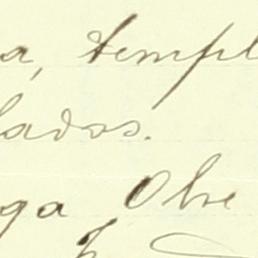 a, templ
lados.
ga Obre